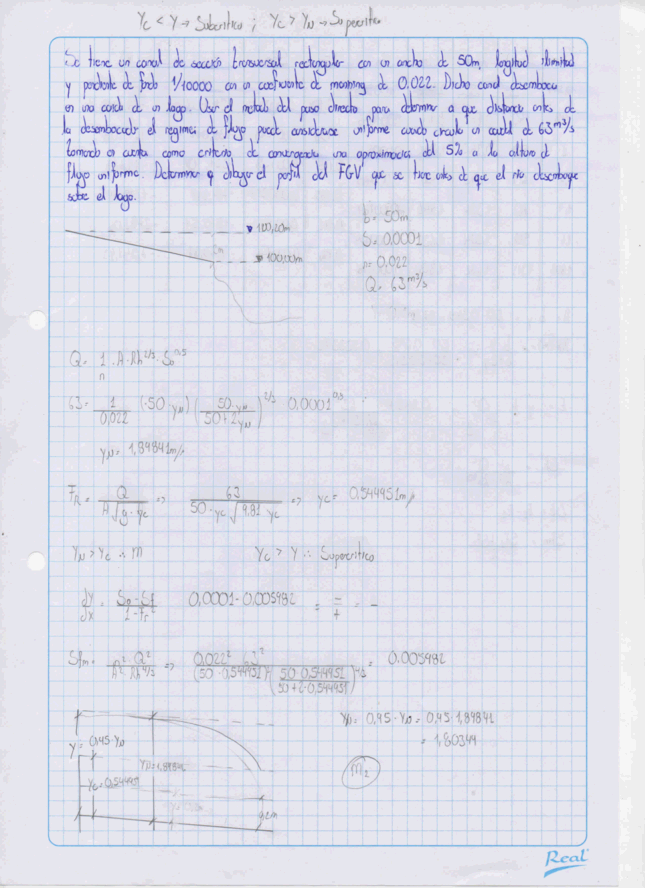 Yc < Y → Subcritico ; Yc > YN → Supercritico
Se tiene un canal de sección transversal rectangular con un ancho de 50m, longitud ilimitad
y pendiente de fondo 1/10000 con un coeficiente de manning de 0,022. Dicho canal desemboca
en una caida de un lago. Usar el metodo del paso directo para determinar a que distancia antes de
la desembocadura el regimen de flujo puede considerarse uniforme cuando circula un caudal de 63 m³/s
tomando en cuenta como criterio de convergencia una aproximacion del 5% a la altura de
flujo uniforme. Determinar y dibujar el perfil del FGV que se tiene antes de que el rio desemboque
sobre el lago.
b = 50m
100,20m
S = 0,0001
100,00m
n = 0,022
Q = 63 m³/s
Q = 1/n · A · Rh^2/3 · So^0.5
63 = 1/0,022 (·50·yN) (50·yN/50+2yN)^2/3 0,0001^0.5
yN = 1,89841m
FR = Q/A√g·yc => 63/50·yc√9.81·yc => yc = 0,544951m
YN > Yc ∴ M Yc > Y ∴ Supercritico
dy/dx = So - Sf/1 - Fr² 0,0001 - 0,005982 = =/+ = -
Sfm = n²·Q²/A²·Rh^4/3 => 0,022²·63²/(50·0,544951)²(50·0,544951/50+2·0,544951)^4/3 = 0,005982
YN = 0,95·YN = 0,95·1,89841
= 1,80349
Y = 0,95·YN
YN = 1,89841
Yc = 0,544951
M2
0,2m
Real